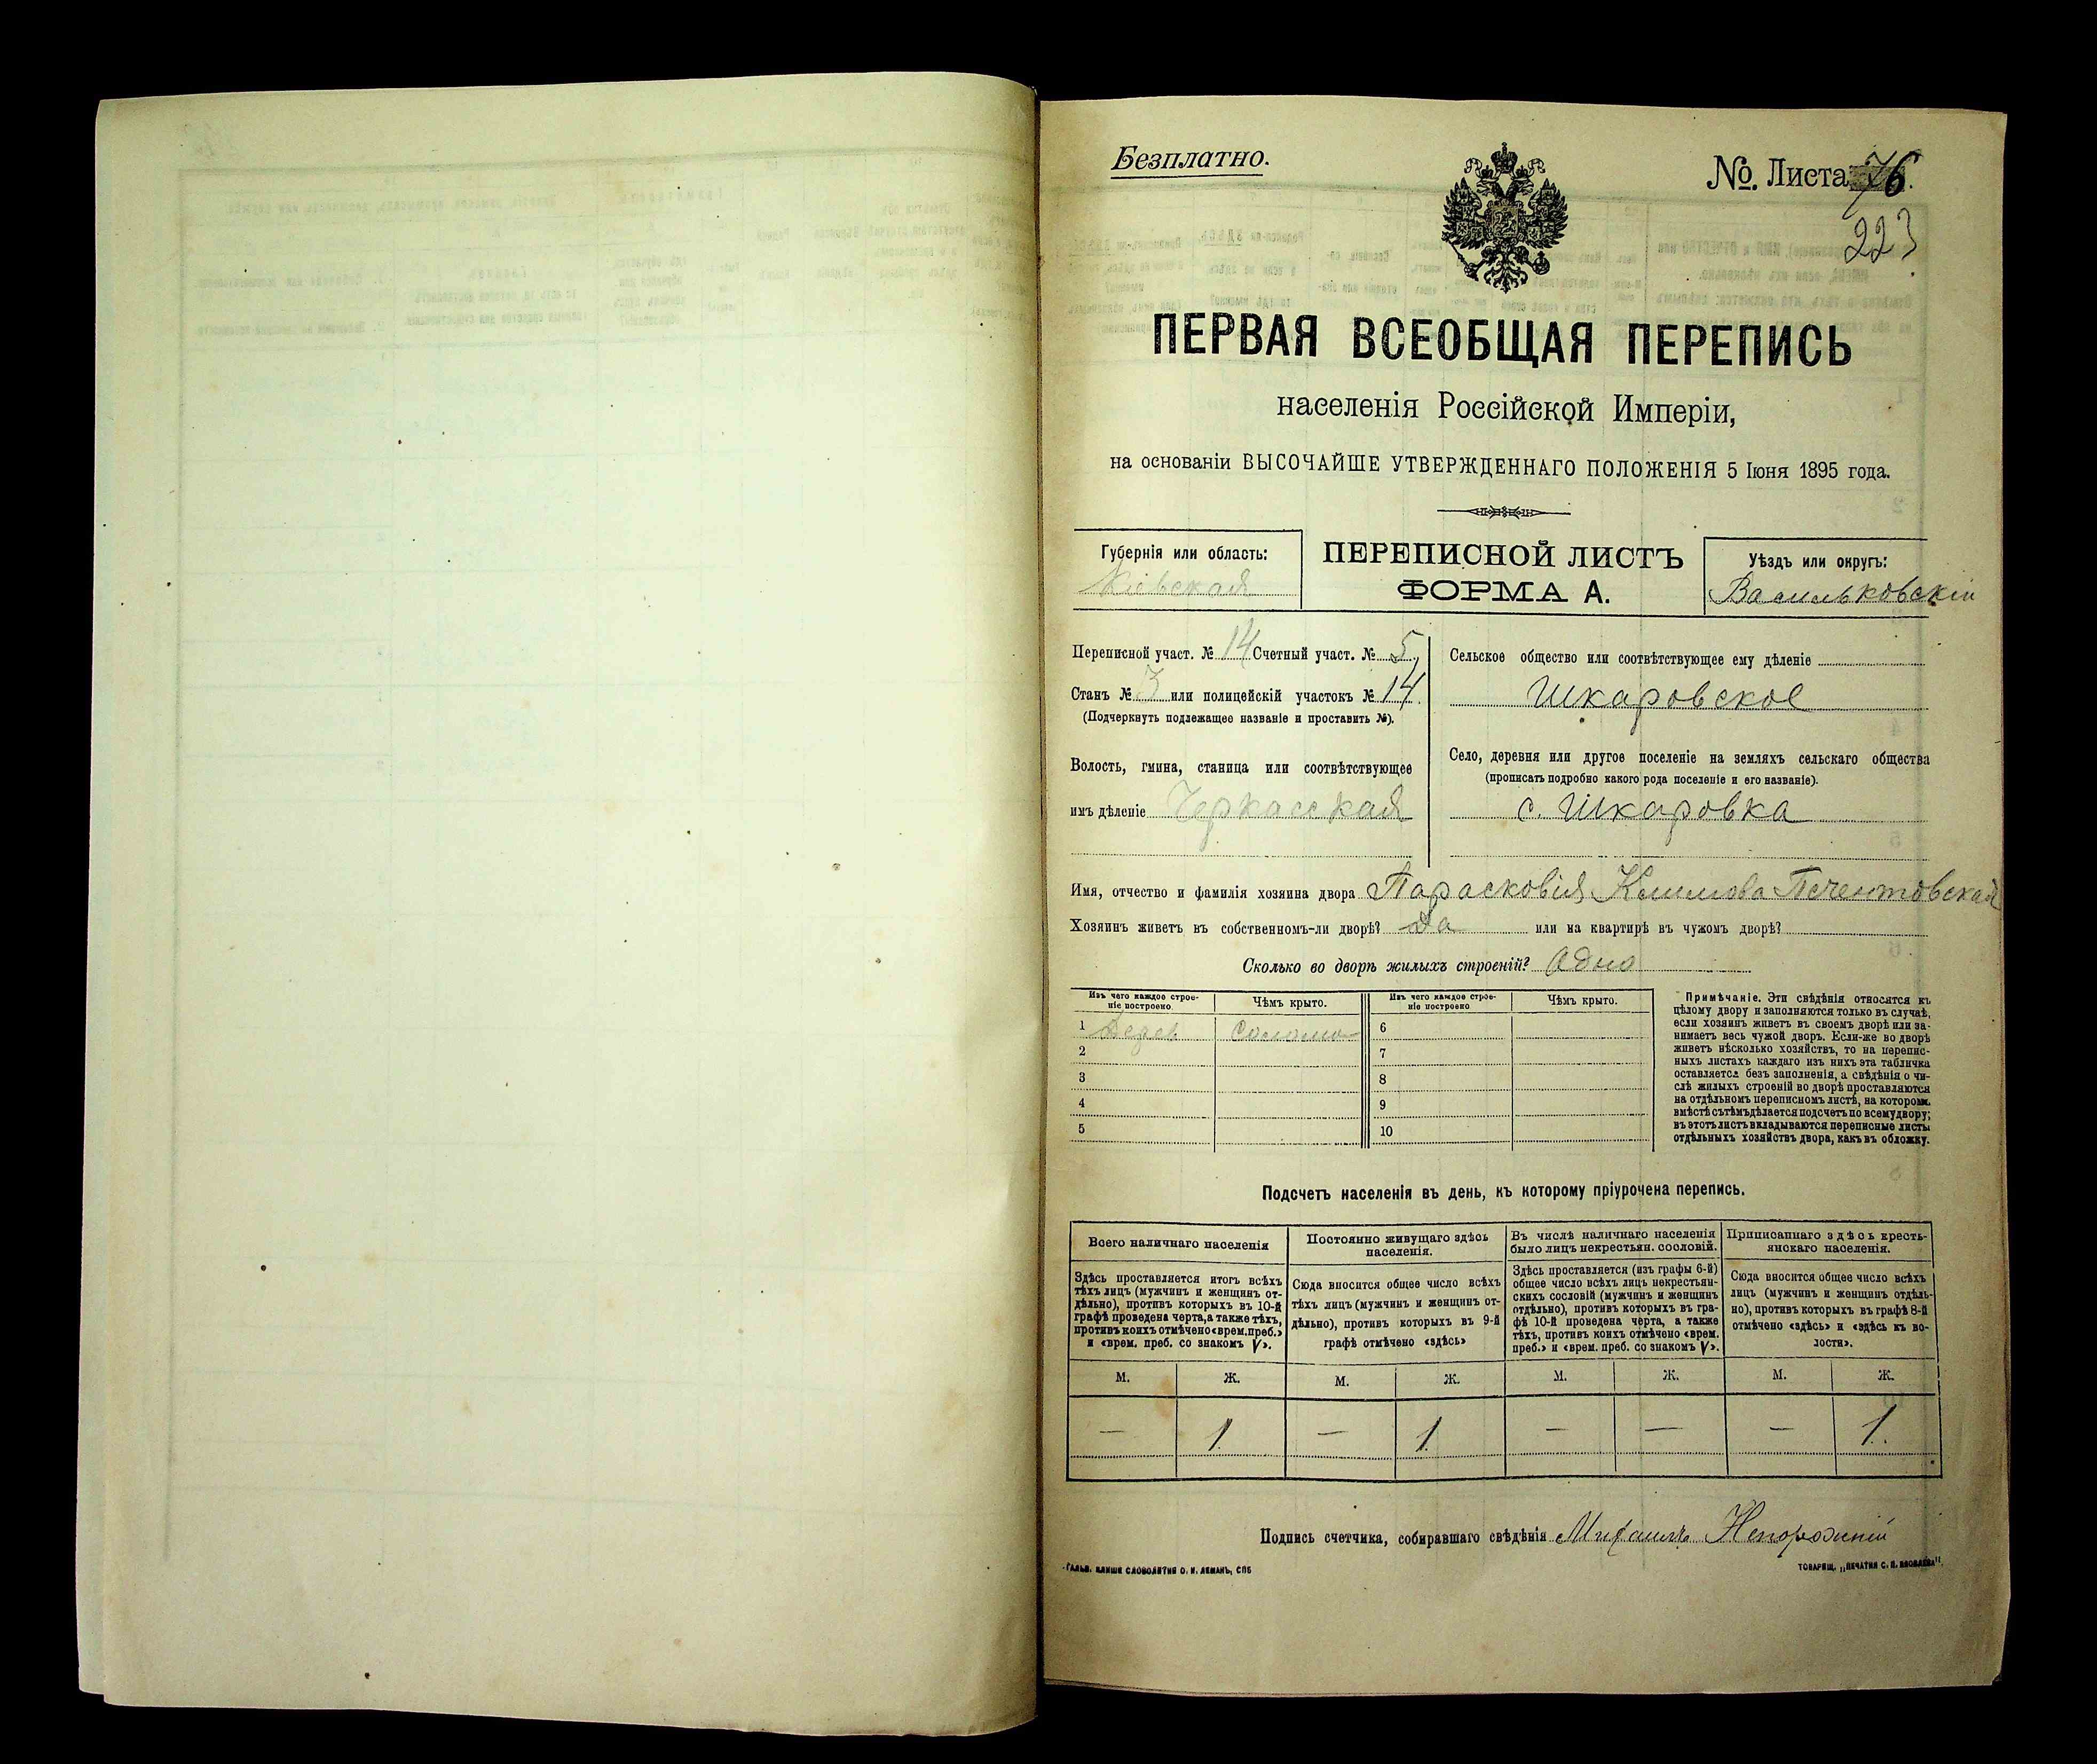 Безплатно.
No. Листа 76.
223
ПЕРВАЯ ВСЕОБЩАЯ ПЕРЕПИСЬ
населенія Россійской Имперіи,
на основаніи ВЫСОЧАЙШЕ УТВЕРЖДЕННАГО ПОЛОЖЕНІЯ 5 Іюня 1895 года.
Губернія или область:
Кіевская
ПЕРЕПИСНОЙ ЛИСТЪ
ФОРМА А.
Уѣздъ или округъ:
Васильковскій
Переписной участ. № 14 Счетный участ. № 5,
Станъ № 3 или полицейскій участокъ № 14.
(Подчеркнуть подлежащее названіе и проставить №).
Волость, гмина, станица или соотвѣтствующее
имъ дѣленіе Черкасская
Сельское общество или соотвѣтствующее ему дѣленіе
Шкаровское
Село, деревня или другое поселеніе на земляхъ сельскаго общества
(прописать подробно какого рода поселеніе и его названіе).
с. Шкаровка
Имя, отчество и фамилія хозяина двора Парасковія Климова
Хозяинъ живетъ въ собственномъ-ли дворѣ? да или на квартирѣ въ чужомъ дворѣ?
Сколько во дворѣ жилыхъ строеній? Одно
Изъ чего каждое строе-
ніе построено
Чѣмъ крыто.
Изъ чего каждое строе-
ніе построено
Чѣмъ крыто.
1 Дерев. Солома
2
3
4
5
6
7
8
9
10
Примѣчаніе. Эти свѣдѣнія относятся къ
цѣлому двору и заполняются только въ случаѣ,
если хозяинъ живетъ въ своемъ дворѣ или за-
нимаетъ весь чужой дворъ. Если-же во дворѣ
живетъ нѣсколько хозяйствъ, то на перепис-
ныхъ листахъ каждаго изъ нихъ эта табличка
оставляется безъ заполненія, а свѣдѣнія о чи-
слѣ жилыхъ строеній во дворѣ проставляются
на отдѣльномъ переписномъ листѣ, на которомъ
вмѣстѣ съ тѣмъ дѣлается подсчетъ по всему двору;
въ этотъ листъ вкладываются переписные листы
отдѣльныхъ хозяйствъ двора, какъ въ обложку.
Подсчетъ населенія въ день, къ которому пріурочена перепись.
Всего наличнаго населенія
Здѣсь проставляется итогъ всѣхъ
тѣхъ лицъ (мужчинъ и женщинъ от-
дѣльно), противъ которыхъ въ 10-й
графѣ проведена черта, а также тѣхъ,
противъ коихъ отмѣчено «врем. преб.»
и «врем. преб. со знакомъ V».
Постоянно живущаго здѣсь
населенія.
Сюда вносится общее число всѣхъ
тѣхъ лицъ (мужчинъ и женщинъ от-
дѣльно), противъ которыхъ въ 9-й
графѣ отмѣчено «здѣсь»
Въ числѣ наличнаго населенія
было лицъ некрестьян. сословій.
Здѣсь проставляется (изъ графы 6-й)
общее число всѣхъ лицъ некрестьян-
скихъ сословій (мужчинъ и женщинъ
отдѣльно), противъ которыхъ въ гра-
фѣ 10-й проведена черта, а также
тѣхъ, противъ коихъ отмѣчено «врем.
преб.» и «врем. преб. со знакомъ V».
Приписаннаго здѣсь кресть-
янскаго населенія.
Сюда вносится общее число всѣхъ
лицъ (мужчинъ и женщинъ отдѣль-
но), противъ которыхъ въ графѣ 8-й
отмѣчено «здѣсь» и «здѣсь къ во-
лости».
М. Ж. М. Ж. М. Ж. М. Ж.
— 1 — 1 — — — 1.
Подпись счетчика, собиравшаго свѣдѣнія Михаилъ Непорожній
ГАЛЬВ. КЛИШЕ СЛОВОЛИТНИ О. И. ЛЕМАНЪ, СПБ
ТОВАРИЩ. „ПЕЧАТНЯ С. П. ЯКОВЛЕВА".